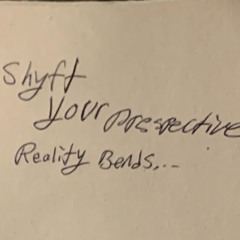 Shyft
Your Prespective
Reality Bends...